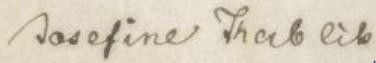 Josefine Thablik